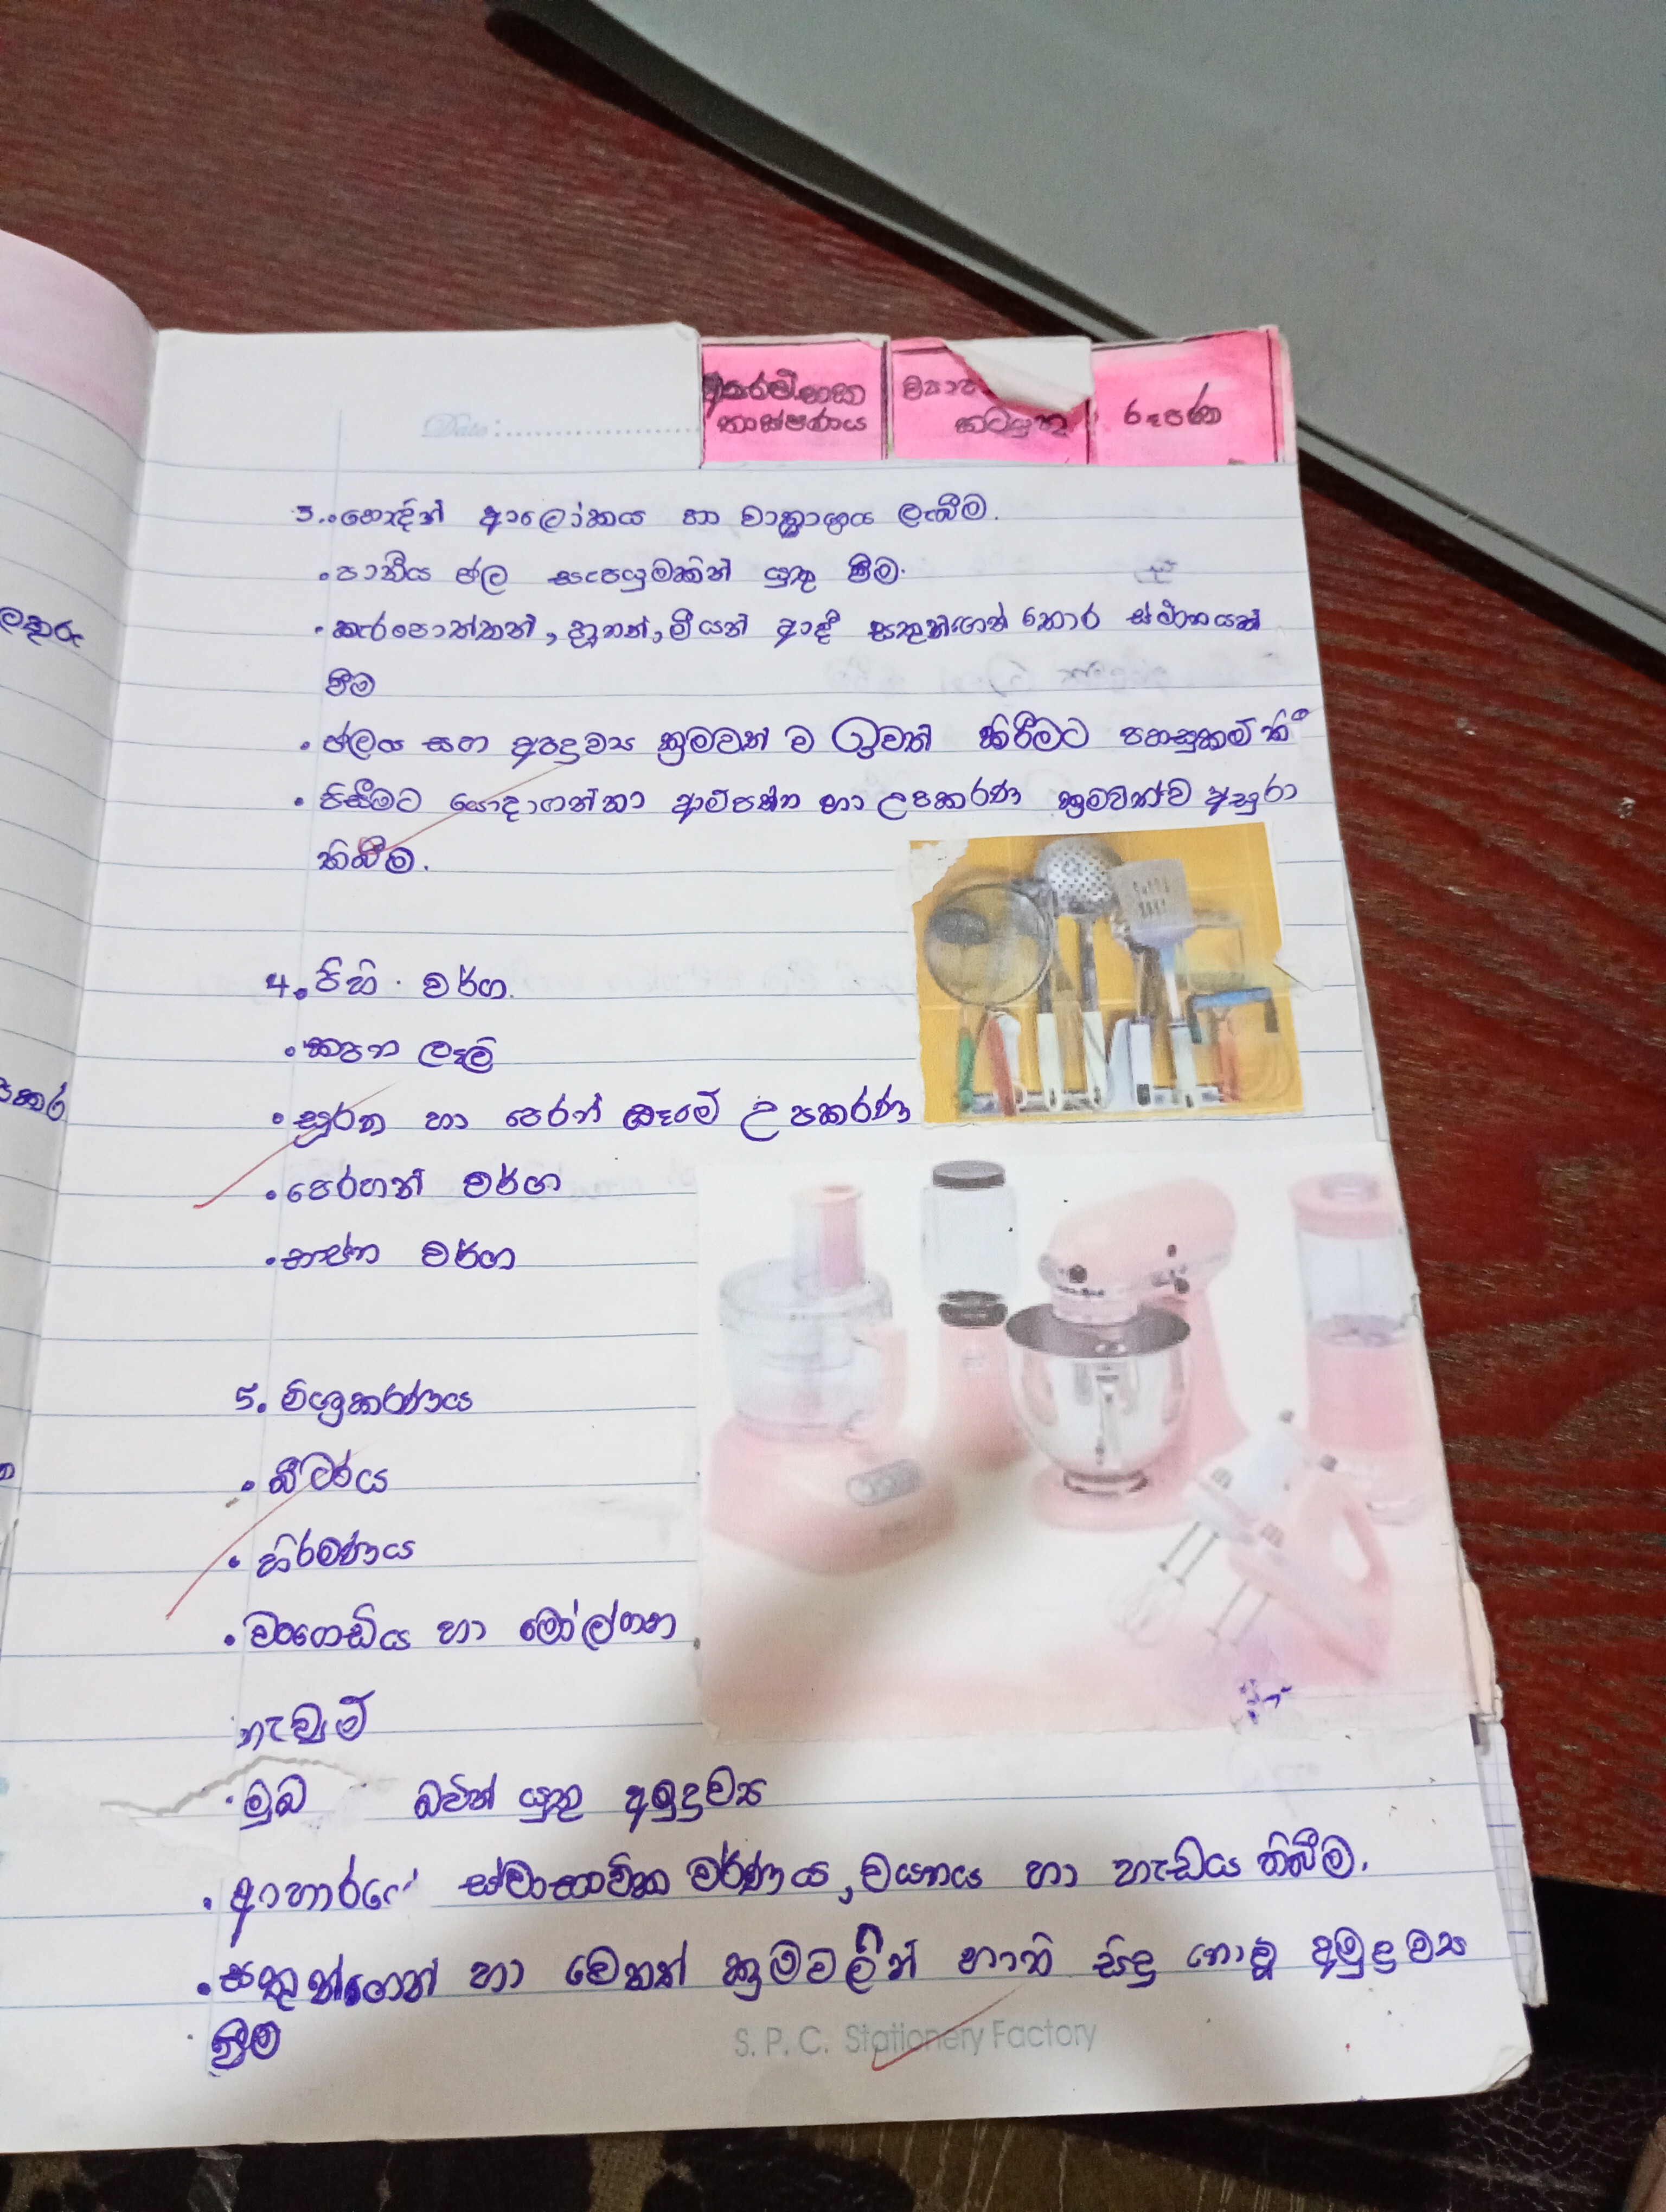 තාක්ෂණය
කටයුතු
රූපණ
Date:
3. හොදින් ආලෝකය හා වාතාශ්‍රය ලැබීම.
• පානීය ජල සැපයුමකින් යුතු වීම.
• කැරපොත්තන්, හූනන්, මීයන් ආදී සතුන්ගෙන් තොර ස්ථානයක්
වීම
• ජලය සහ අපද්‍රව්‍ය ක්‍රමවත් ව ඉවත් කිරීමට පහසුකම් තිබී
• පිසීමට යොදාගන්නා ආම්පන්න හා උපකරණ ක්‍රමවත්ව අසුරා
තිබීම.
4. පිහි වර්ග.
• කපන ලෑලි
• සූරන හා පෙරන් ගෑමේ උපකරණ
• පෙරහන් වර්ග
• භාජන වර්ග
5. මිශ්‍රකරණය
• බීටරය
• හිරමණය
• වංගෙඩිය හා මෝල්ගහ
නැවුම්
• මුඛ බවින් යුතු අමුද්‍රව්‍ය
• ආහාරයේ ස්වාභාවික වර්ණය, වයනය හා හැඩය තිබීම.
• සතුන්ගෙන් හා වෙනත් ක්‍රමවලින් හානි සිදු නොවූ අමුද්‍රව්‍ය
වීම
S. P. C. Stationery Factory
ලතුරු